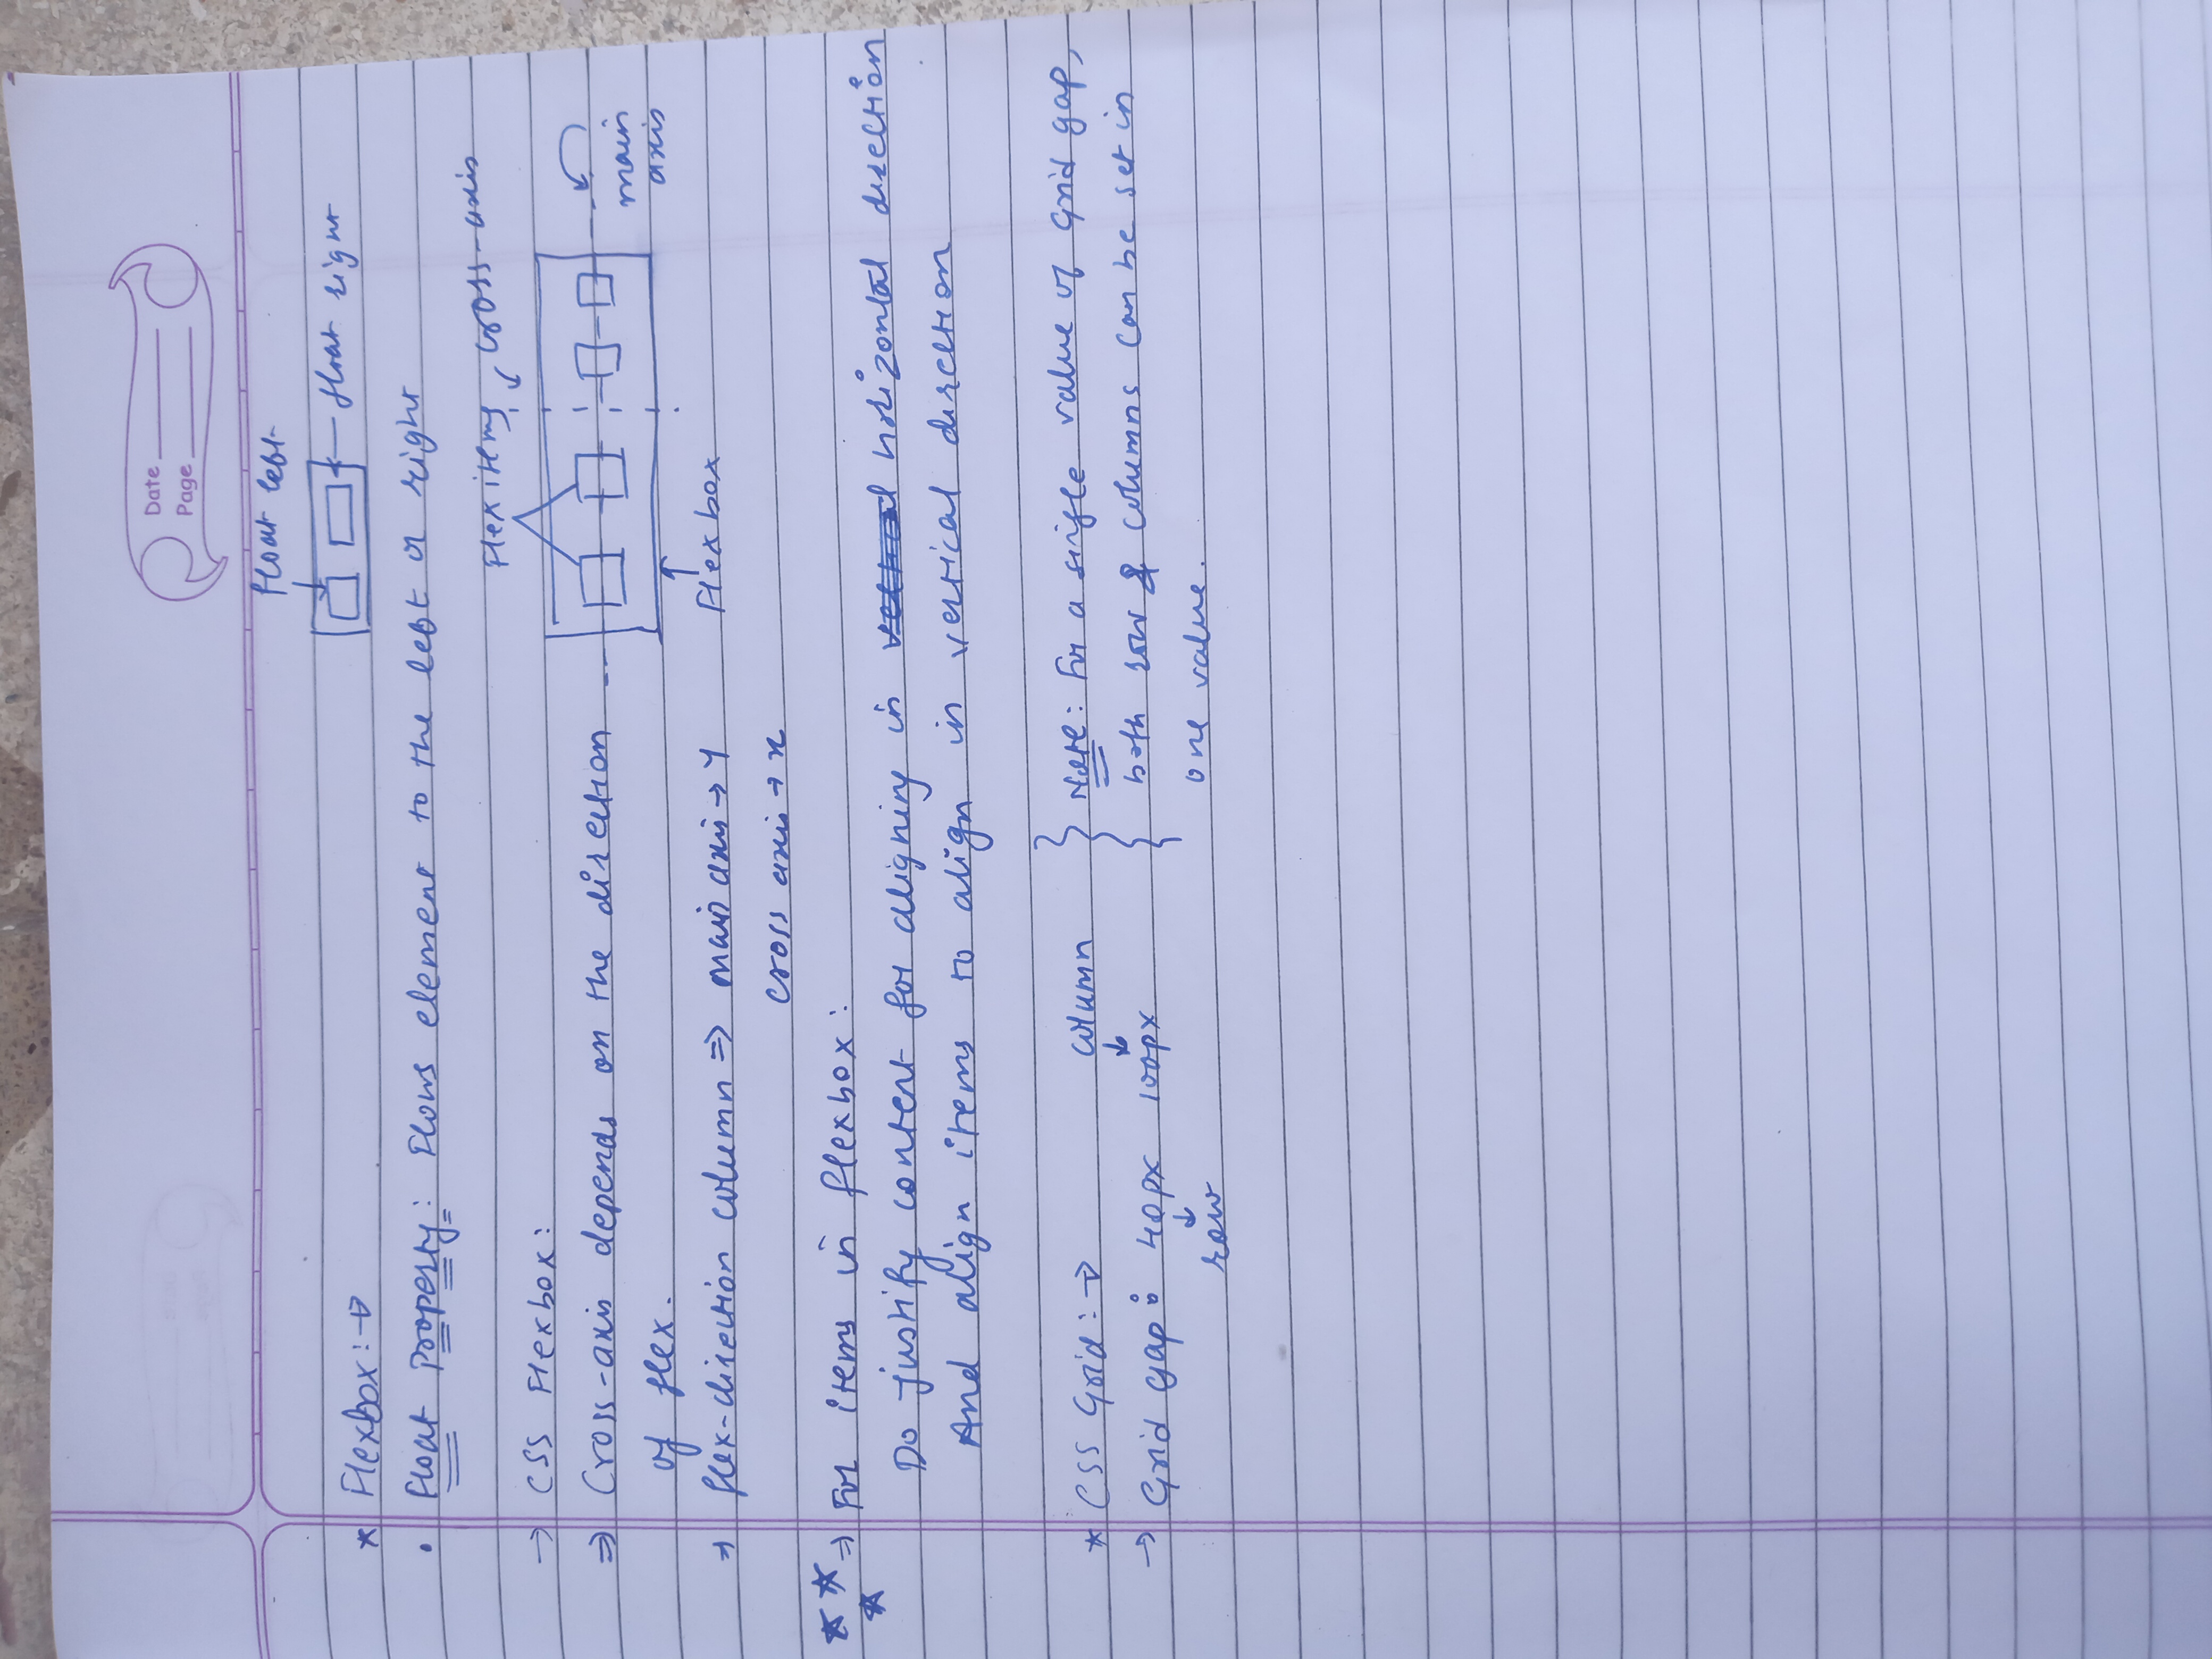 Date
Page
float left
★ Flexbox :→
float right
• Float Property : Flows element to the left or right
Flex items cross-axis
→ CSS Flexbox :
⇒ Cross-axis depends on the direction
main axis
of flex.
⇒ flex-direction column ⇒ main axis → Y
Flexbox
cross axis → x
★★★ ⇒ For items in flexbox :
Do justify content for aligning in horizontal direction
And align items to align in vertical direction
★ CSS Grid :→ column
Note : For a single value of grid gap,
→ Grid gap : 40px 100px
both row & columns can be set in
row
one value.